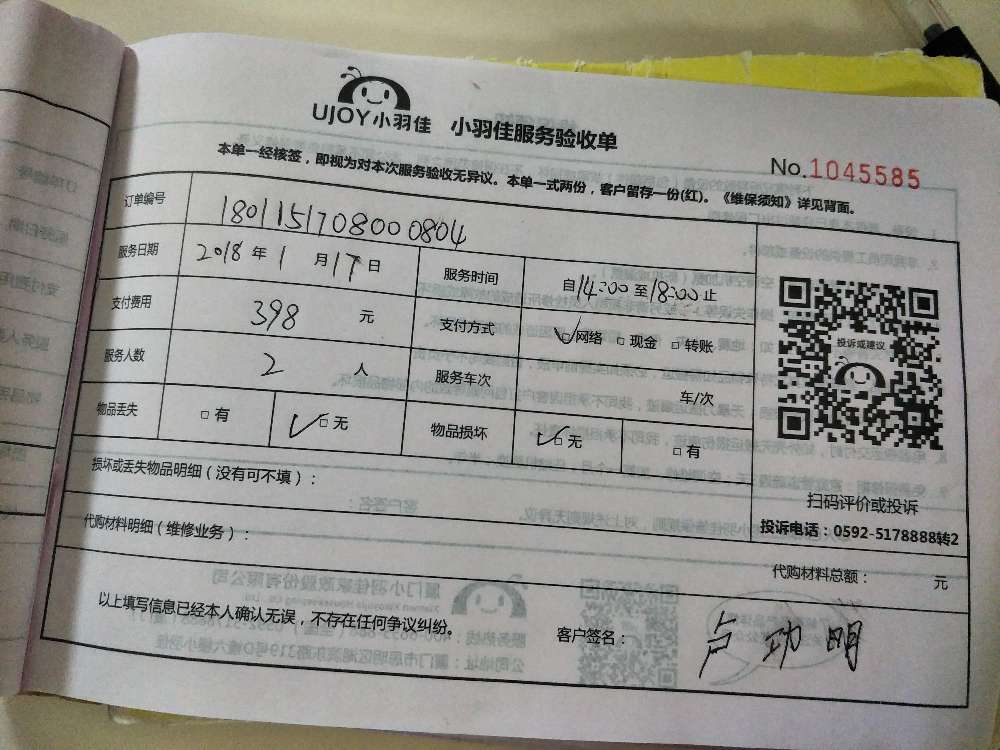 UJOY小羽佳 小羽佳服务验收单
No.1045585
本单一经核签，即视为对本次服务验收无异议。本单一式两份，客户留存一份(红)。《维保须知》详见背面。
订单编号 180115170800 0804
服务日期 2018 年 1 月 17 日 服务时间 自14:00至18:00止
支付费用 398 元 支付方式 ☑网络 □现金 □转账
服务人数 2 人 服务车次 车/次
物品丢失 □有 ☑无 物品损坏 ☑无 □有
投诉或建议
扫码评价或投诉
投诉电话：0592-5178888转2
损坏或丢失物品明细（没有可不填）：
代购材料明细（维修业务）：
代购材料总额： 元
以上填写信息已经本人确认无误，不存在任何争议纠纷。 客户签名： 卢功明